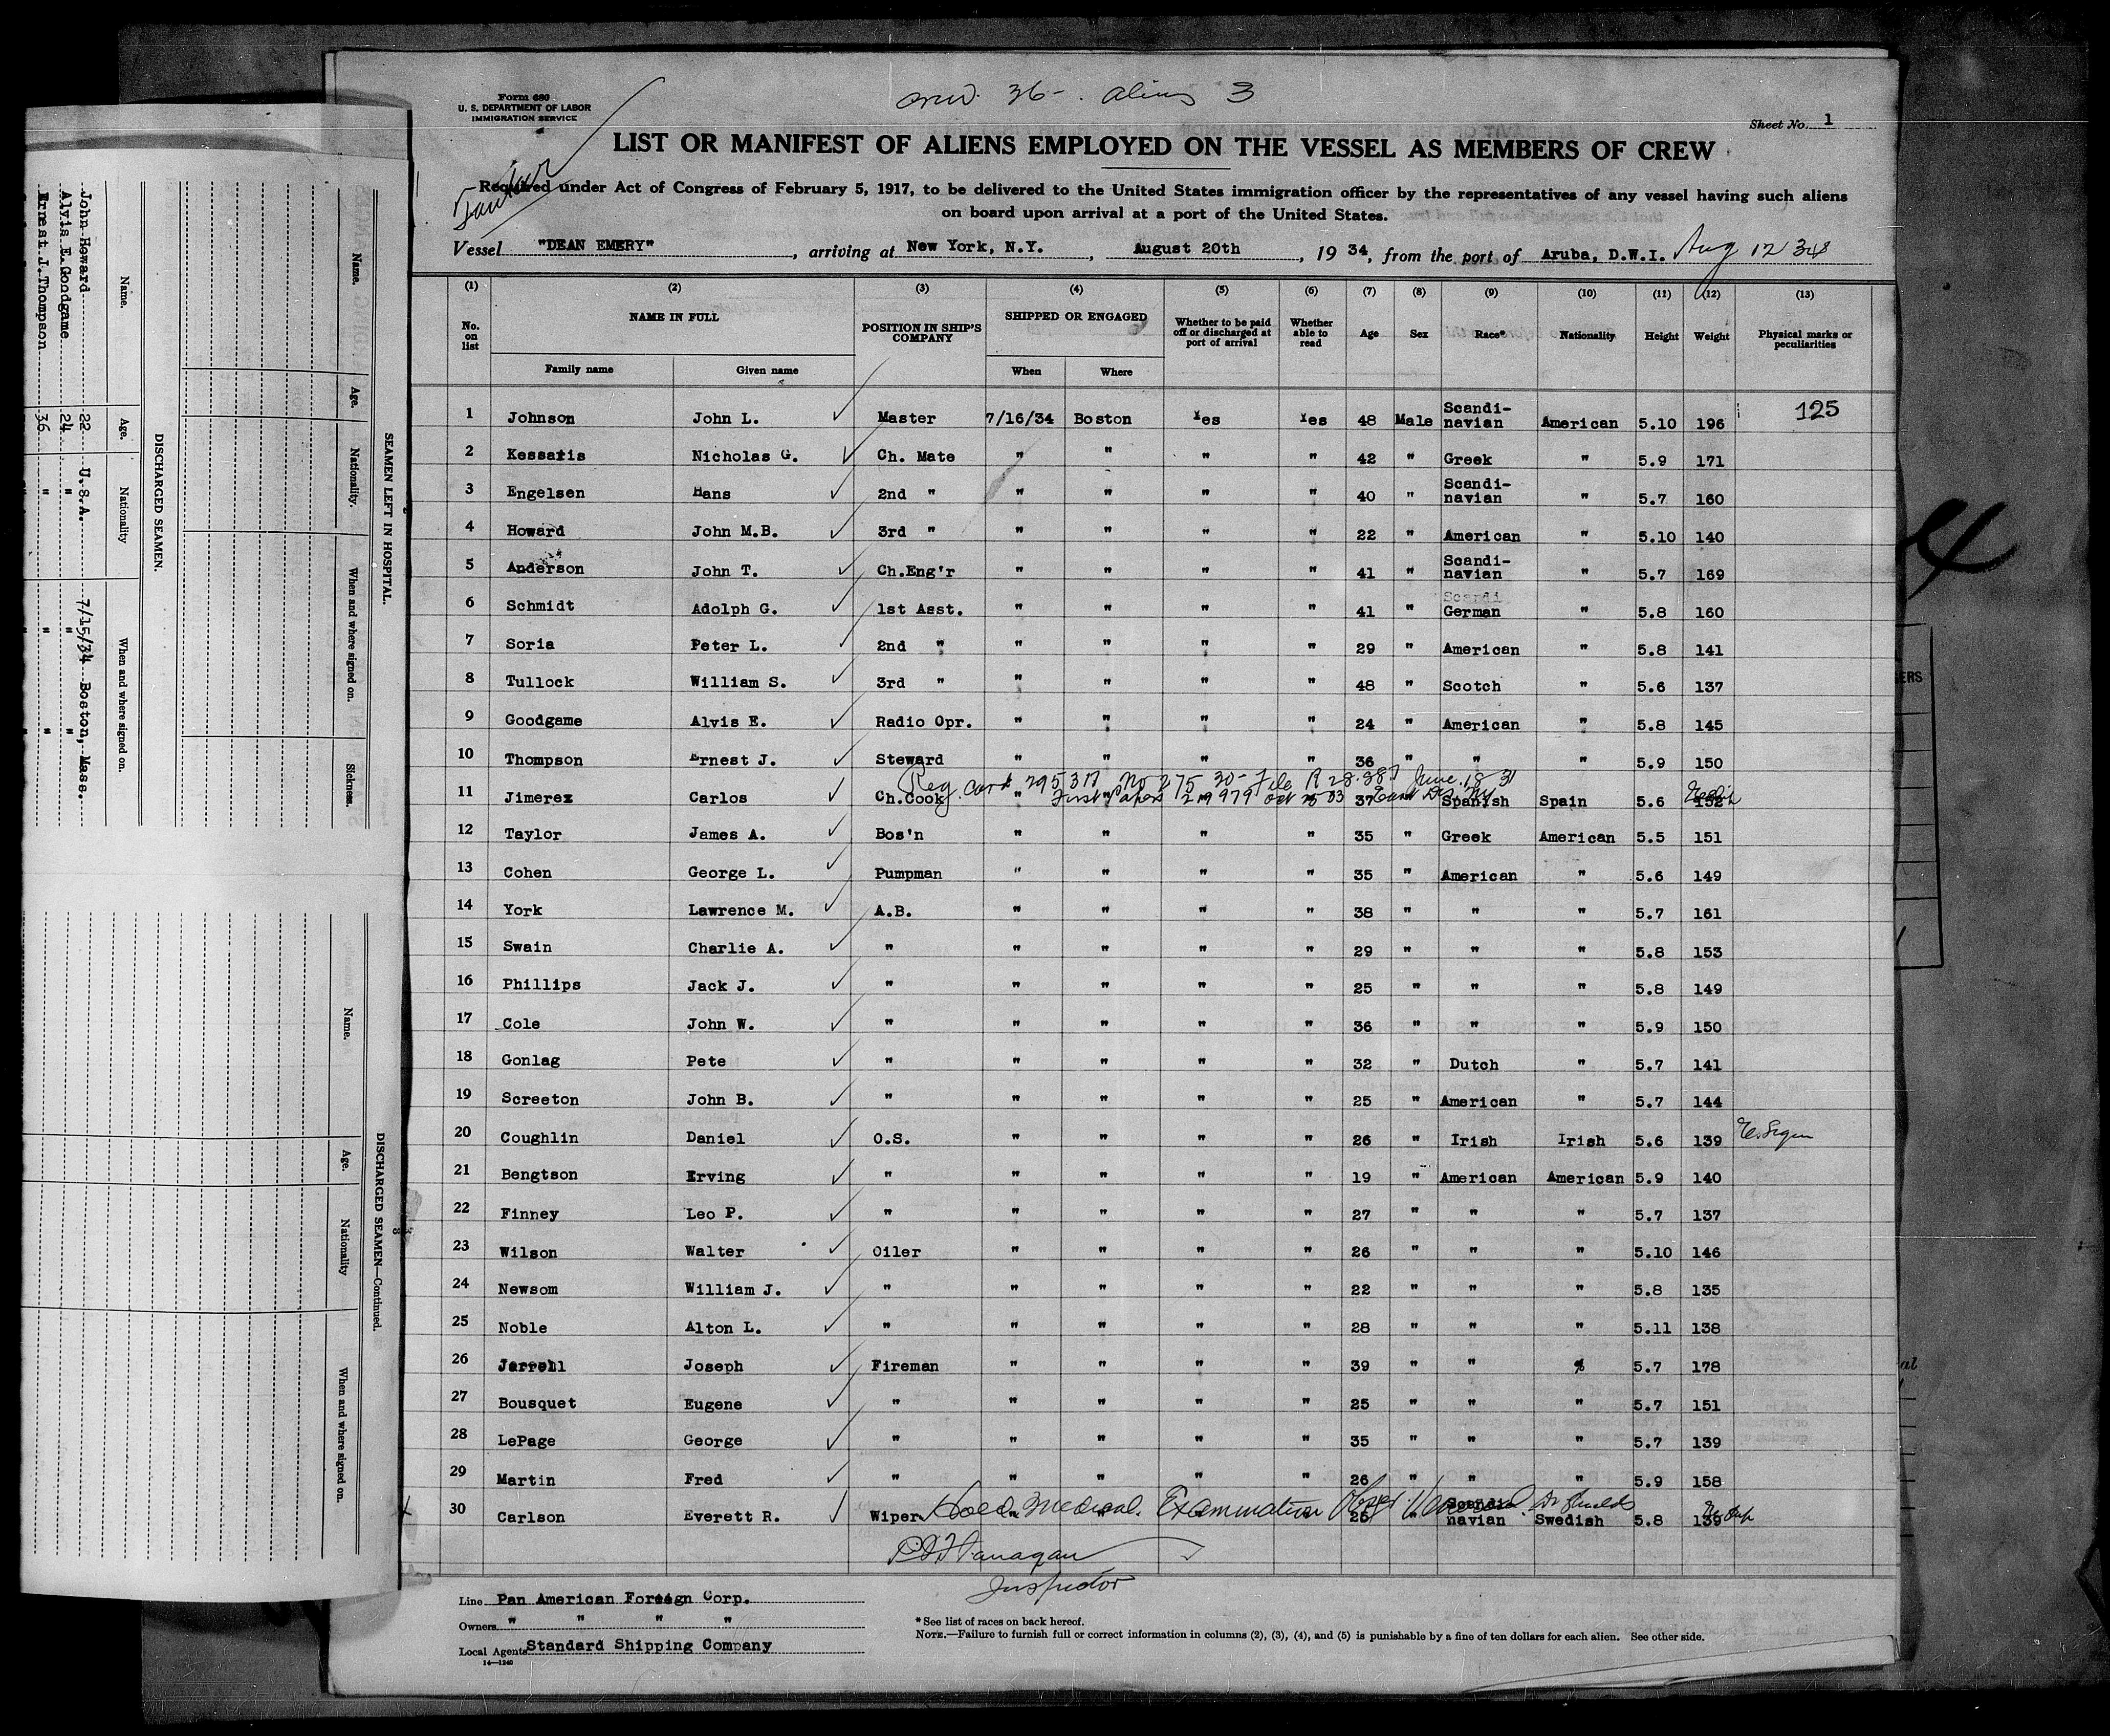 crew 36 - aliens 3
Form 680
U. S. DEPARTMENT OF LABOR
IMMIGRATION SERVICE
Sheet No. 1
LIST OR MANIFEST OF ALIENS EMPLOYED ON THE VESSEL AS MEMBERS OF CREW
Tanker
Required under Act of Congress of February 5, 1917, to be delivered to the United States immigration officer by the representatives of any vessel having such aliens
on board upon arrival at a port of the United States.
Vessel "DEAN EMERY", arriving at New York, N.Y., August 20th, 1934, from the port of Aruba, D.W.I. Aug 12 34
(1) (2) (3) (4) (5) (6) (7) (8) (9) (10) (11) (12) (13)
No. on list NAME IN FULL POSITION IN SHIP'S COMPANY SHIPPED OR ENGAGED Whether to be paid off or discharged at port of arrival Whether able to read Age Sex Race* Nationality Height Weight Physical marks or peculiarities
Family name Given name When Where
1 Johnson John L. Master 7/16/34 Boston Yes Yes 48 Male Scandi-navian American 5.10 196 125
2 Kessaris Nicholas G. Ch. Mate " " " " 42 " Greek " 5.9 171
3 Engelsen Hans 2nd " " " " " 40 " Scandi-navian " 5.7 160
4 Howard John M.B. 3rd " " " " " 22 " American " 5.10 140
5 Anderson John T. Ch.Eng'r " " " " 41 " Scandi-navian " 5.7 169
6 Schmidt Adolph G. 1st Asst. " " " " 41 " German " 5.8 160
7 Soria Peter L. 2nd " " " " " 29 " American " 5.8 141
8 Tullock William S. 3rd " " " " " 48 " Scotch " 5.6 137
9 Goodgame Alvis E. Radio Opr. " " " " 24 " American " 5.8 145
10 Thompson Ernest J. Steward " " " " 36 " " " 5.9 150
Reg. card 295317 No 275 30 - File R 28.287 June 18 31
First Papers
11 Jimerez Carlos Ch.Cook " " " " 37 " Spanish Spain 5.6 152
12 Taylor James A. Bos'n " " " " 35 " Greek American 5.5 151
13 Cohen George L. Pumpman " " " " 35 " American " 5.6 149
14 York Lawrence M. A.B. " " " " 38 " " " 5.7 161
15 Swain Charlie A. " " " " " 29 " " " 5.8 153
16 Phillips Jack J. " " " " " 25 " " " 5.8 149
17 Cole John W. " " " " " 36 " " " 5.9 150
18 Gonlag Pete " " " " " 32 " Dutch " 5.7 141
19 Screeton John B. " " " " " 25 " American " 5.7 144
20 Coughlin Daniel O.S. " " " " 26 " Irish Irish 5.6 139
21 Bengtson Erving " " " " " 19 " American American 5.9 140
22 Finney Leo P. " " " " " 27 " " " 5.7 137
23 Wilson Walter Oiler " " " " 26 " " " 5.10 146
24 Newsom William J. " " " " " 22 " " " 5.8 135
25 Noble Alton L. " " " " " 28 " " " 5.11 138
26 Jarrell Joseph Fireman " " " " 39 " " " 5.7 178
27 Bousquet Eugene " " " " " 25 " " " 5.7 151
28 LePage George " " " " " 35 " " " 5.7 139
29 Martin Fred " " " " " 26 " " " 5.9 158
Hold Medical Examination
30 Carlson Everett R. Wiper " " " " 25 " Scandi-navian Swedish 5.8 139
Flanagan
Inspector
Line Pan American Foreign Corp.
Owners " " " "
Local Agents Standard Shipping Company
14—1240
*See list of races on back hereof.
NOTE.—Failure to furnish full or correct information in columns (2), (3), (4), and (5) is punishable by a fine of ten dollars for each alien. See other side.
SEAMEN LEFT IN HOSPITAL.
Name. Age. Nationality. When and where signed on. Sickness.
DISCHARGED SEAMEN.
Name. Age. Nationality When and where signed on.
John Howard 22 U.S.A. 7/15/34 Boston, Mass.
Alvis E. Goodgame 24 " " "
Ernest J. Thompson 36 " " "
DISCHARGED SEAMEN—Continued.
Name. Age. Nationality When and where signed on.